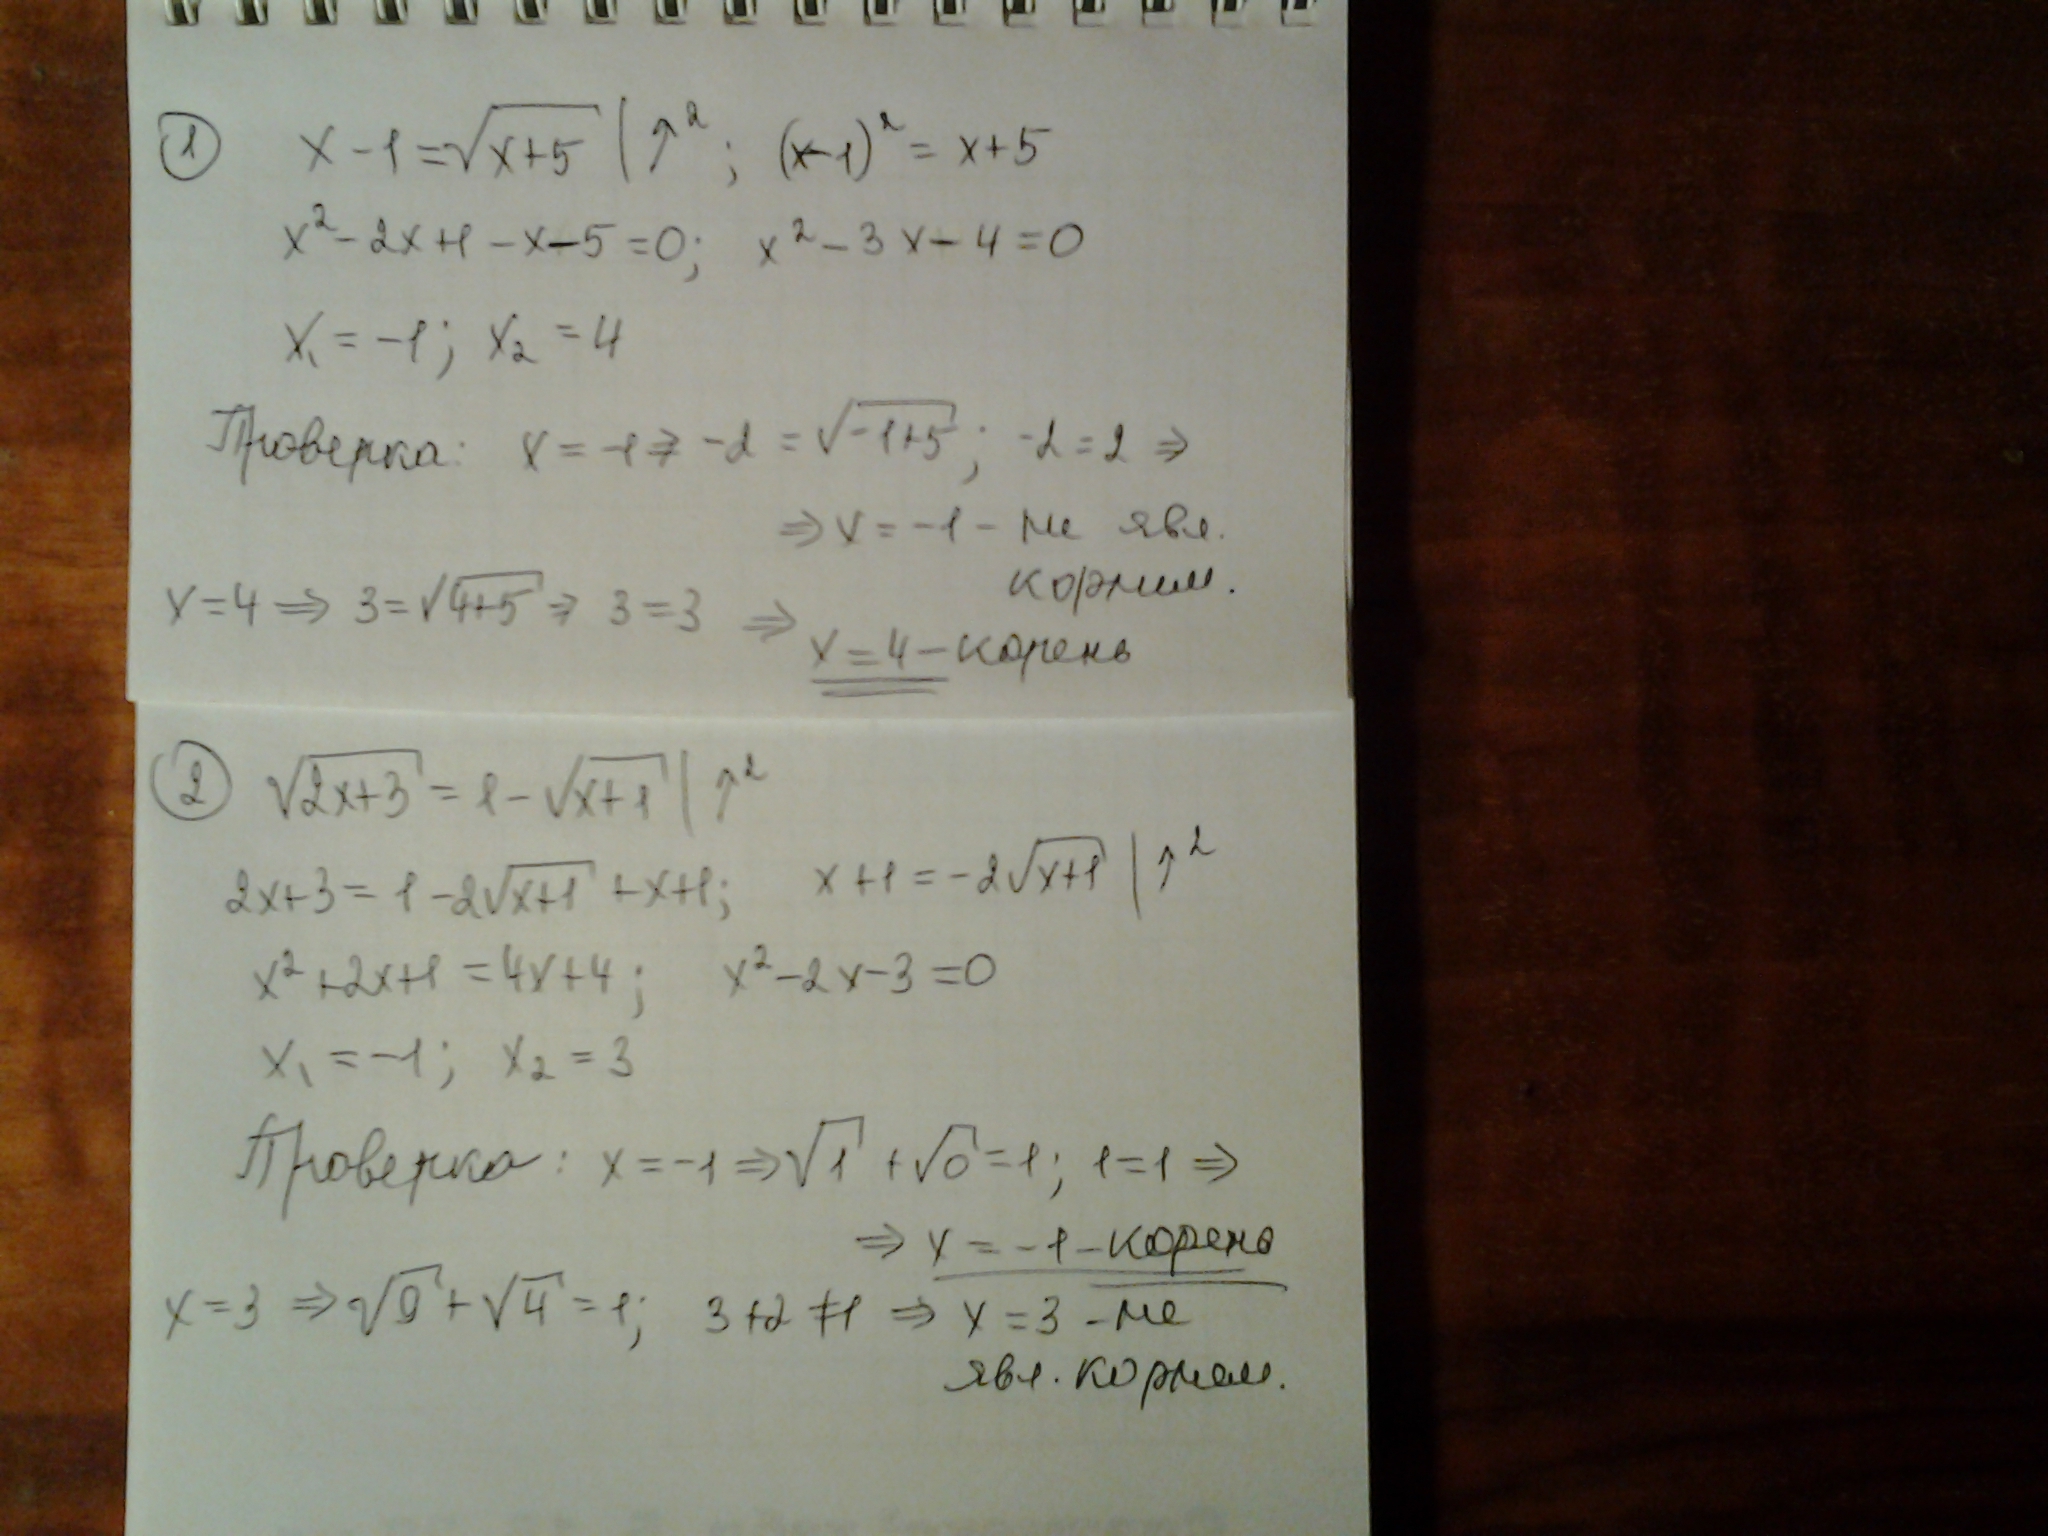 ① x-1=√(x+5) | ↑²; (x-1)²=x+5
x²-2x+1-x-5=0; x²-3x-4=0
x₁=-1; x₂=4
Проверка: x=-1⇒ -2=√(-1+5); -2=2 ⇒
⇒ x=-1 - не явл.
корнем.
x=4 ⇒ 3=√(4+5) ⇒ 3=3 ⇒
x=4 - корень
② √(2x+3) = 1-√(x+1) | ↑²
2x+3=1-2√(x+1)+x+1; x+1=-2√(x+1) | ↑²
x²+2x+1=4x+4; x²-2x-3=0
x₁=-1; x₂=3
Проверка: x=-1⇒√1+√0=1; 1=1 ⇒
⇒ x=-1 - корень
x=3 ⇒√9+√4=1; 3+2≠1 ⇒ x=3 - не
явл. корнем.